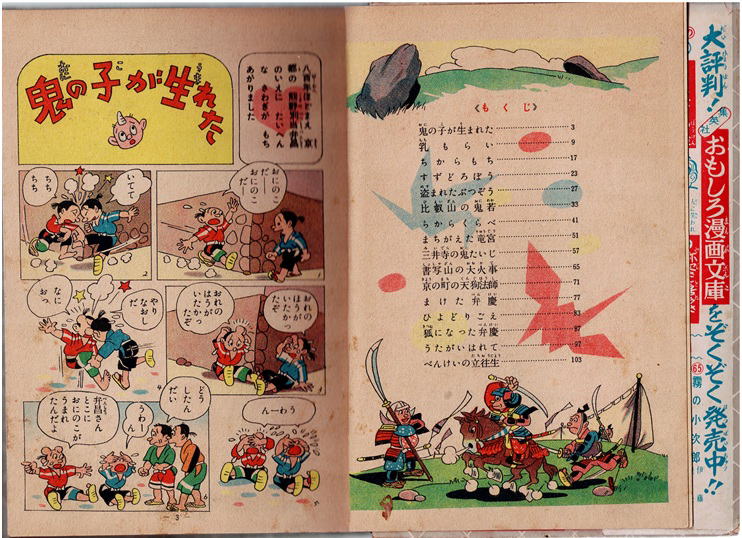 大評判!
集英社
おもしろ漫画文庫をぞくぞく発売中!!
霧の小次郎
《もくじ》
鬼の子が生まれた 3
乳もらい 9
ちからもち 17
すずどろぼう 23
盗まれたぶつぞう 27
比叡山の鬼若 33
ちからくらべ 41
まちがえた竜宮 51
三井寺の鬼たいじ 57
書写山の大火事 65
京の町の天狗法師 71
まけた弁慶 77
ひよどりごえ 83
狐になった弁慶 87
うたがいはれて 97
べんけいの立往生 103
鬼の子が生れた
八百年ほどまえ 京
都の 熊野別当弁昌
のいえに たいへん
な さわぎが もち
あがりました
おにのこ
だ
おにのこ
だ
1
いてて
ちち
ちち
2
おれの
ほうが
いたかっ
た
おれの
ほうが
いたかっ
たぞ
やり
なおし
だ
なに
おっ
4
んーわう
5
どう
したん
だい
うわー
ん
弁昌さん
とこに
おにのこが
うまれ
たんだよ
6
— 3 —